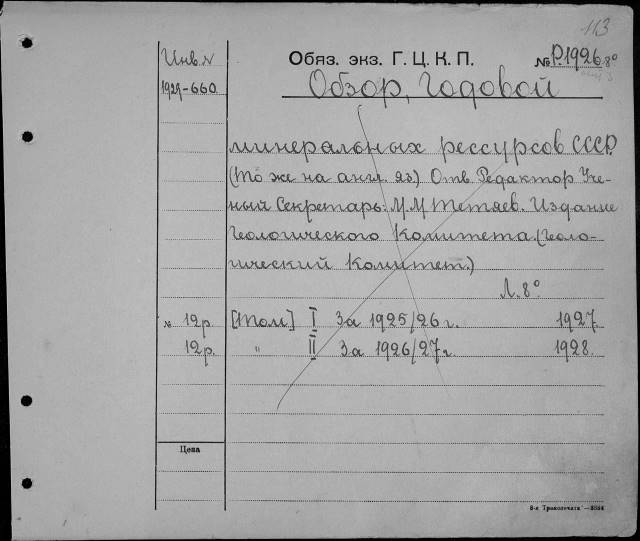 113
Инв. N
1929-660
Обяз. экз. Г. Ц. К. П.
№ Р.1926 8°
Обзор, Годовой
минеральных рессурсов СССР.
(То же на англ. яз) Отв. Редактор Уче-
ный Секретарь: М М Тетяев. Издание
Геологического Комитета. (Геоло-
гический Комитет.)
Л. 8°
№ 12р. [Том] I За 1925/26 г. 1927.
12р. " II За 1926/27 г. 1928.
Цена